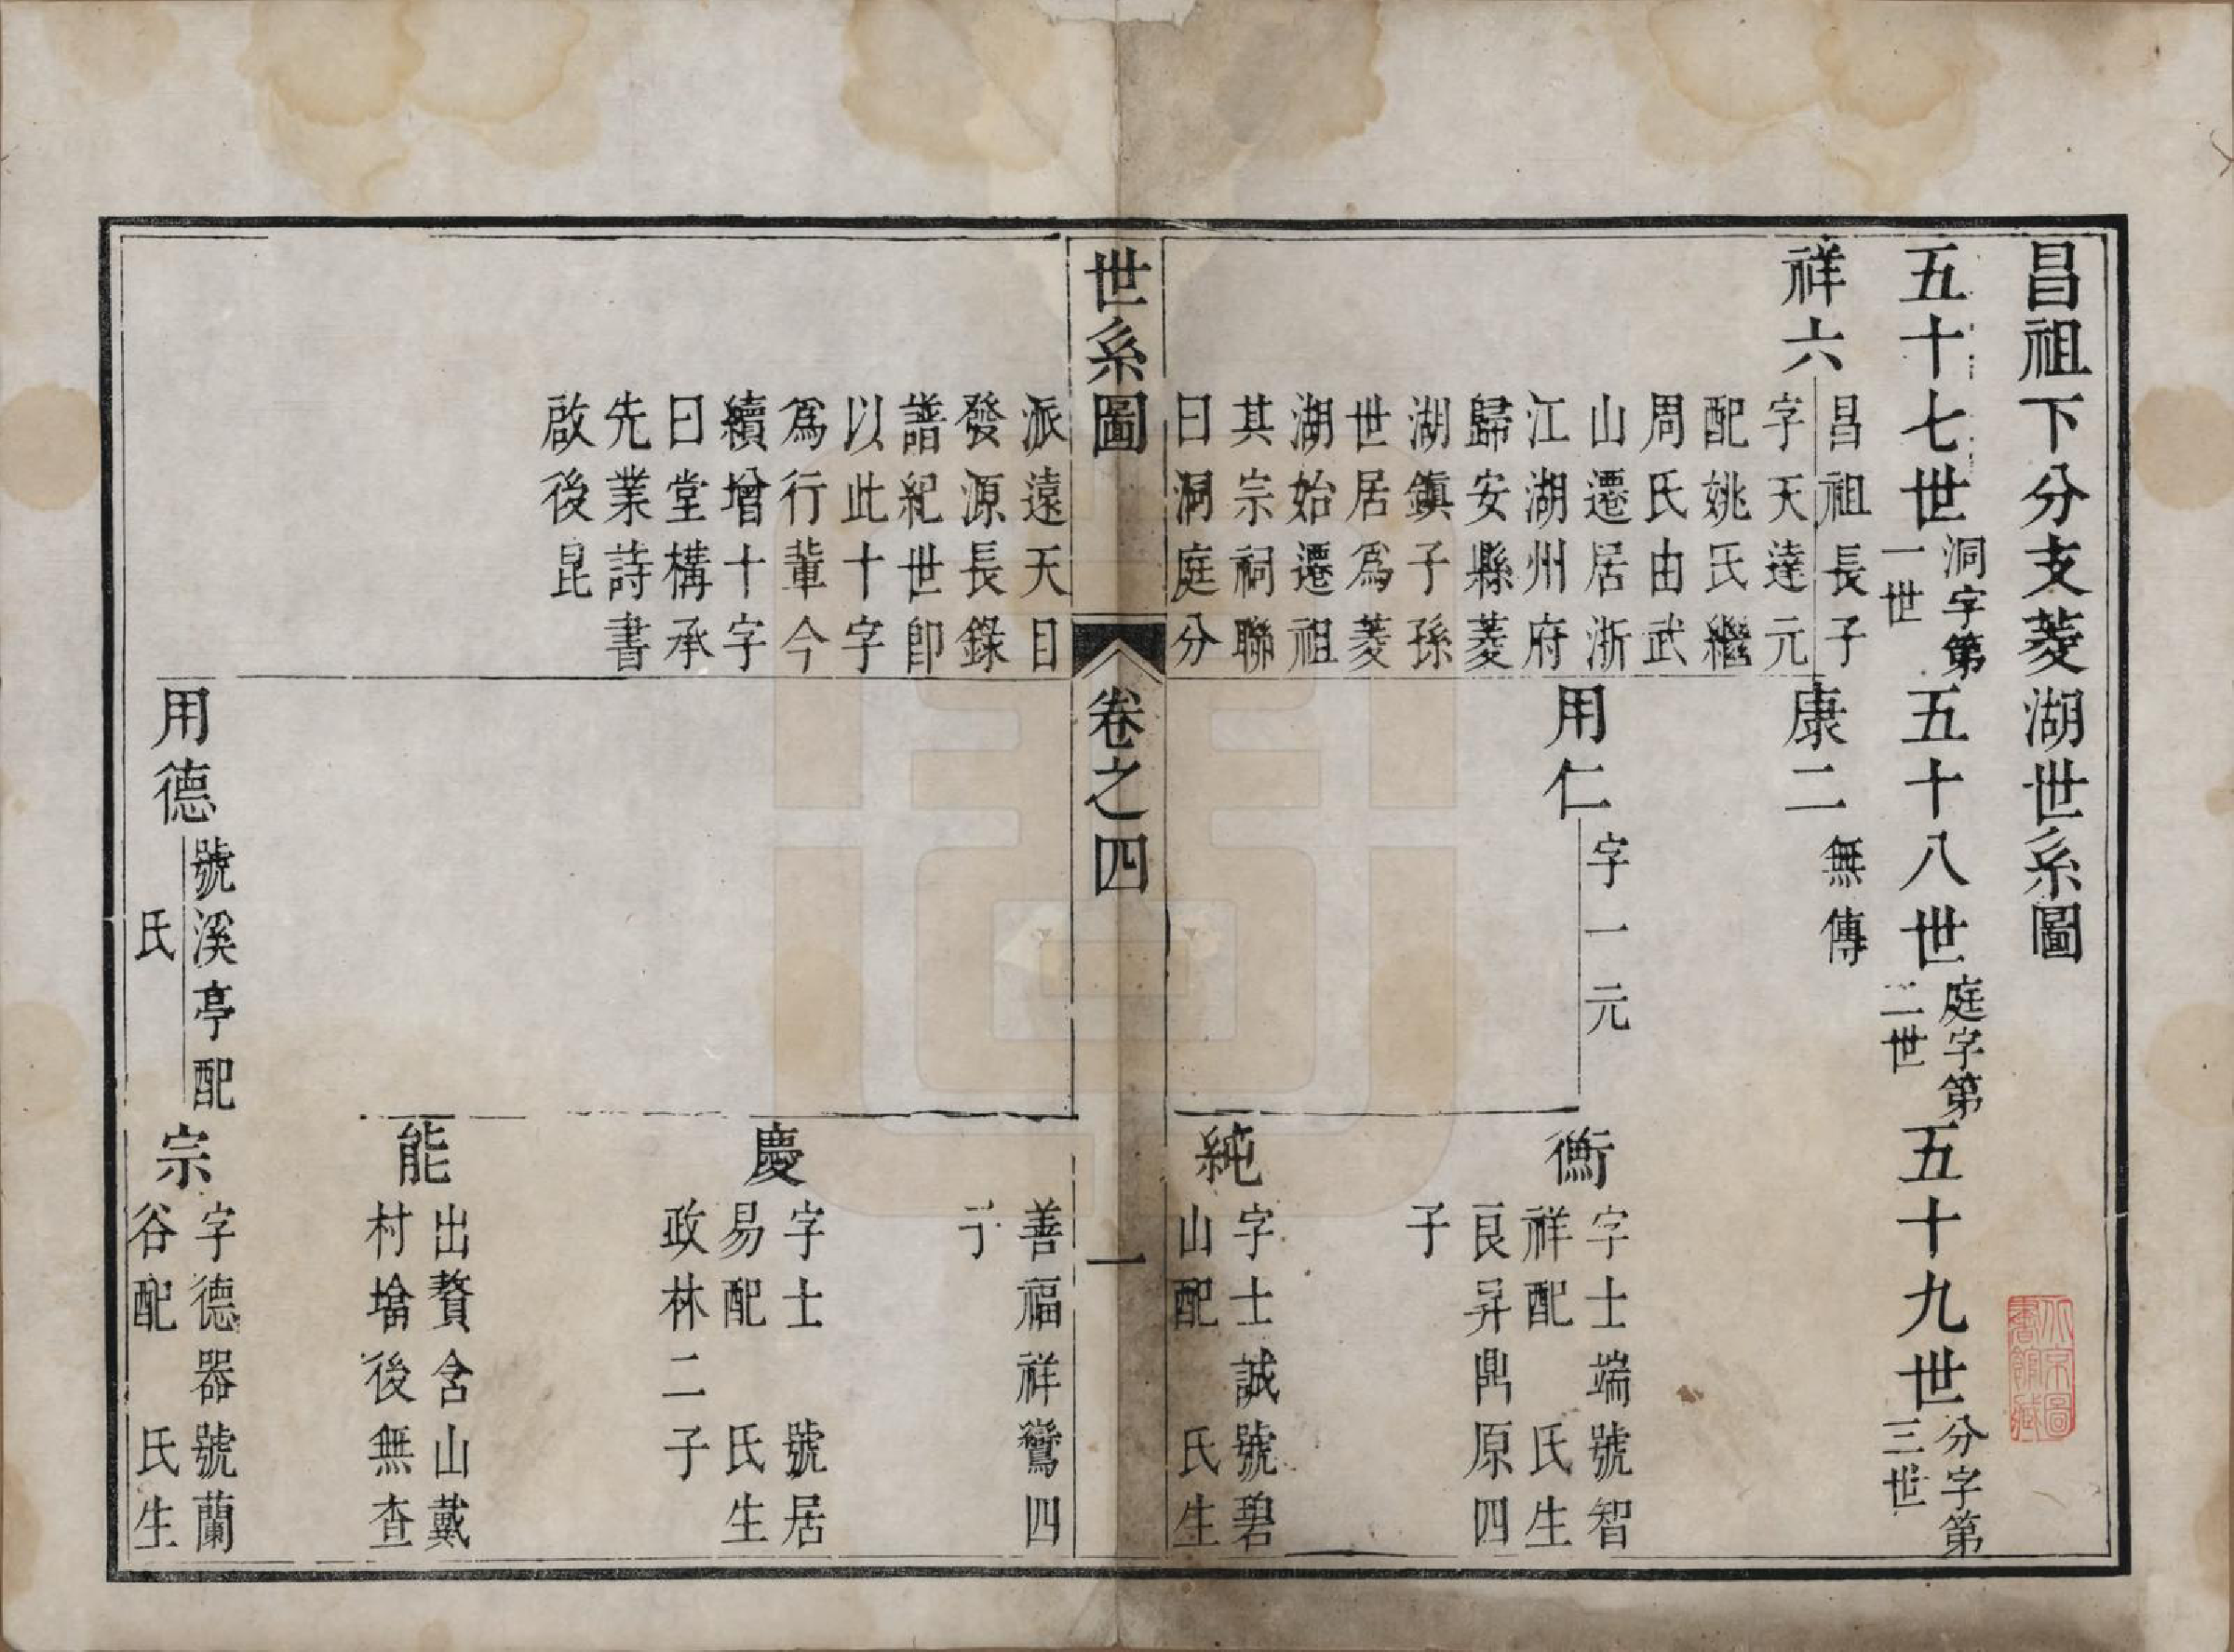 昌祖下分支菱湖世系圖
五十七世洞字第一世 五十八世庭字第二世 五十九世分字第三世
祥六
昌祖長子
字天達元
配姚氏繼
周氏由武
山遷居浙
江湖州府
歸安縣菱
湖鎮子孫
世居爲菱
湖始遷祖
其宗祠聯
曰洞庭分
派遠天目
發源長錄
譜紀世卽
以此十字
爲行輩今
續增十字
曰堂構承
先業詩書
啟後昆
康二
無傳
用仁
字一元
用德
號溪亭配
氏
衡
字士端號智
祥配 氏生
良昇鼎原四
子
純
字士誠號碧
山配 氏生
善福祥鸞四
子
慶
字士 號居
易配 氏生
政林二子
能
出贅含山戴
村壋後無查
宗
字德器號蘭
谷配 氏生
世系圖 卷之四 一
北京圖書館藏